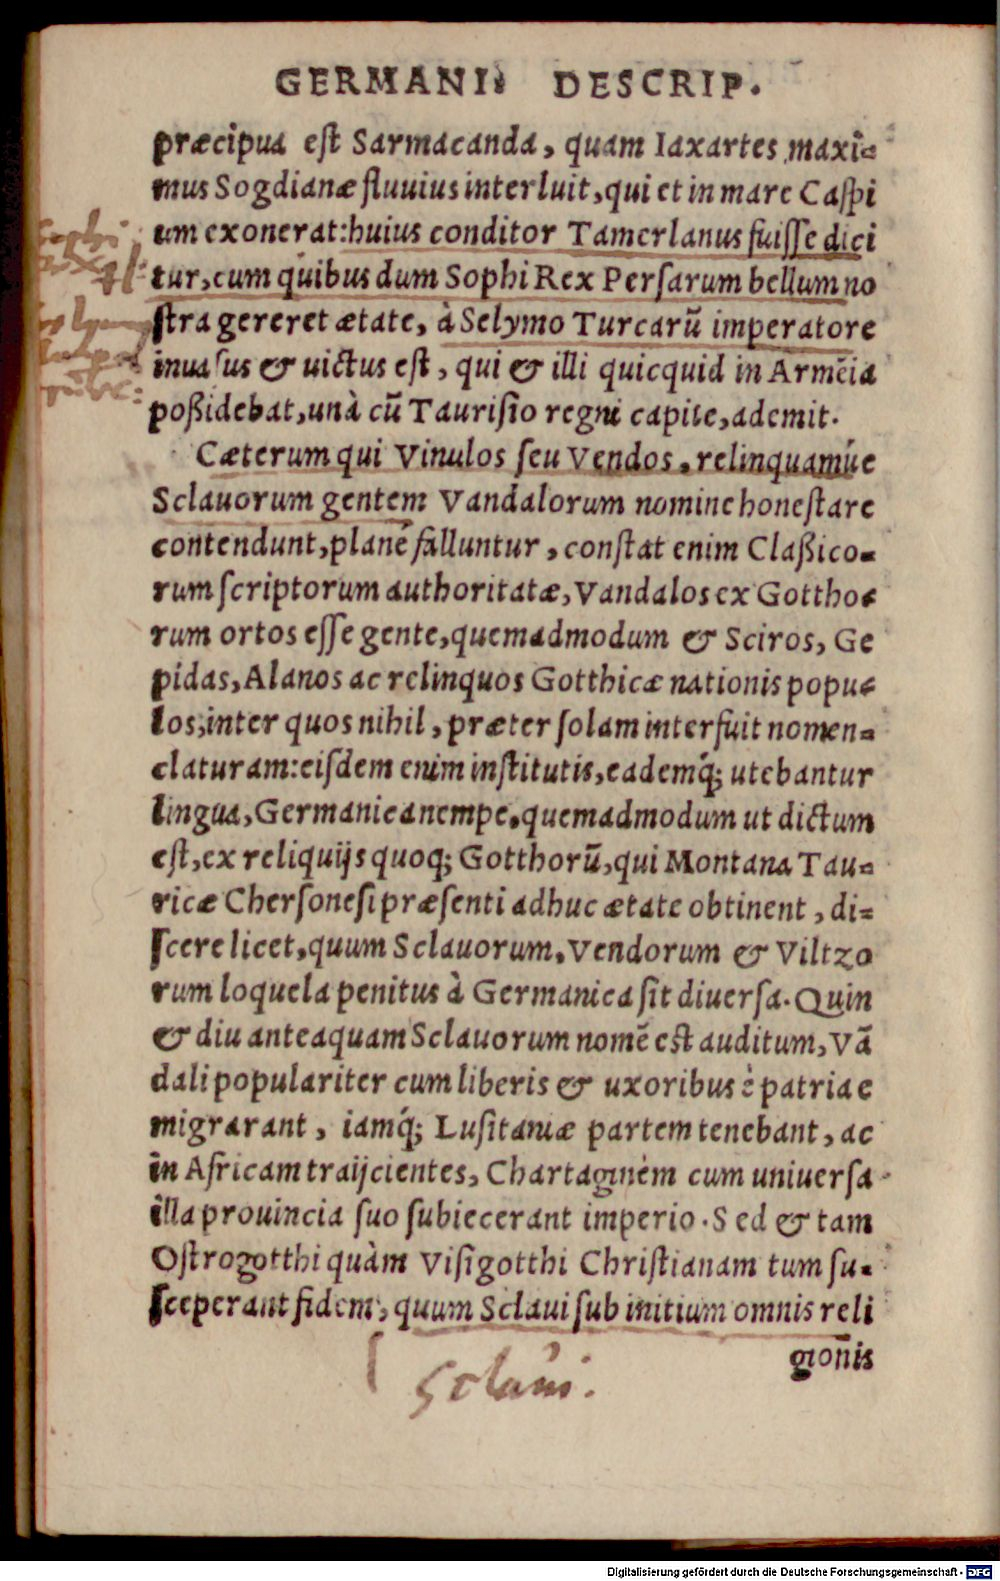 GERMANI: DESCRIP.
præcipua est Sarmacanda, quam Iaxartes maxi=
mus Sogdianæ fluuius interluit, qui et in mare Caspi
um exonerat: huius conditor Tamerlanus fuisse dici
tur, cum quibus dum Sophi Rex Persarum bellum no
stra gereret ætate, à Selymo Turcarũ imperatore
inuasus & uictus est, qui & illi quicquid in Armẽia
poßidebat, unà cũ Taurisio regni capite, ademit.
Cæterum qui Vinulos seu Vendos, relinquamúe
Sclauorum gentem Vandalorum nomine honestare
contendunt, planè falluntur, constat enim Claßico=
rum scriptorum authoritatæ, Vandalos ex Gottho=
rum ortos esse gente, quemadmodum & Sciros, Ge
pidas, Alanos ac relinquos Gotthicæ nationis popu=
los, inter quos nihil, præter solam interfuit nomen=
claturam: eisdem enim institutis, eademq́; utebantur
lingua, Germanica nempe, quemadmodum ut dictum
est, ex reliquijs quoq; Gotthorũ, qui Montana Tau=
ricæ Chersonesi præsenti adhuc ætate obtinent, di=
scere licet, quum Sclauorum, Vendorum & Viltzo
rum loquela penitus à Germanica sit diuersa. Quin
& diu anteaquam Sclauorum nomẽ est auditum, Vã
dali populariter cum liberis & uxoribus è patria e
migrarant, iamq́; Lusitaniæ partem tenebant, ac
in Africam traijcientes, Chartaginem cum uniuersa
illa prouincia suo subiecerant imperio. Sed & tam
Ostrogotthi quàm Visigotthi Christianam tum su=
sceperant fidem, quum Sclaui sub initium omnis reli
gionis
Sclaui.
Digitalisierung gefördert durch die Deutsche Forschungsgemeinschaft - DFG